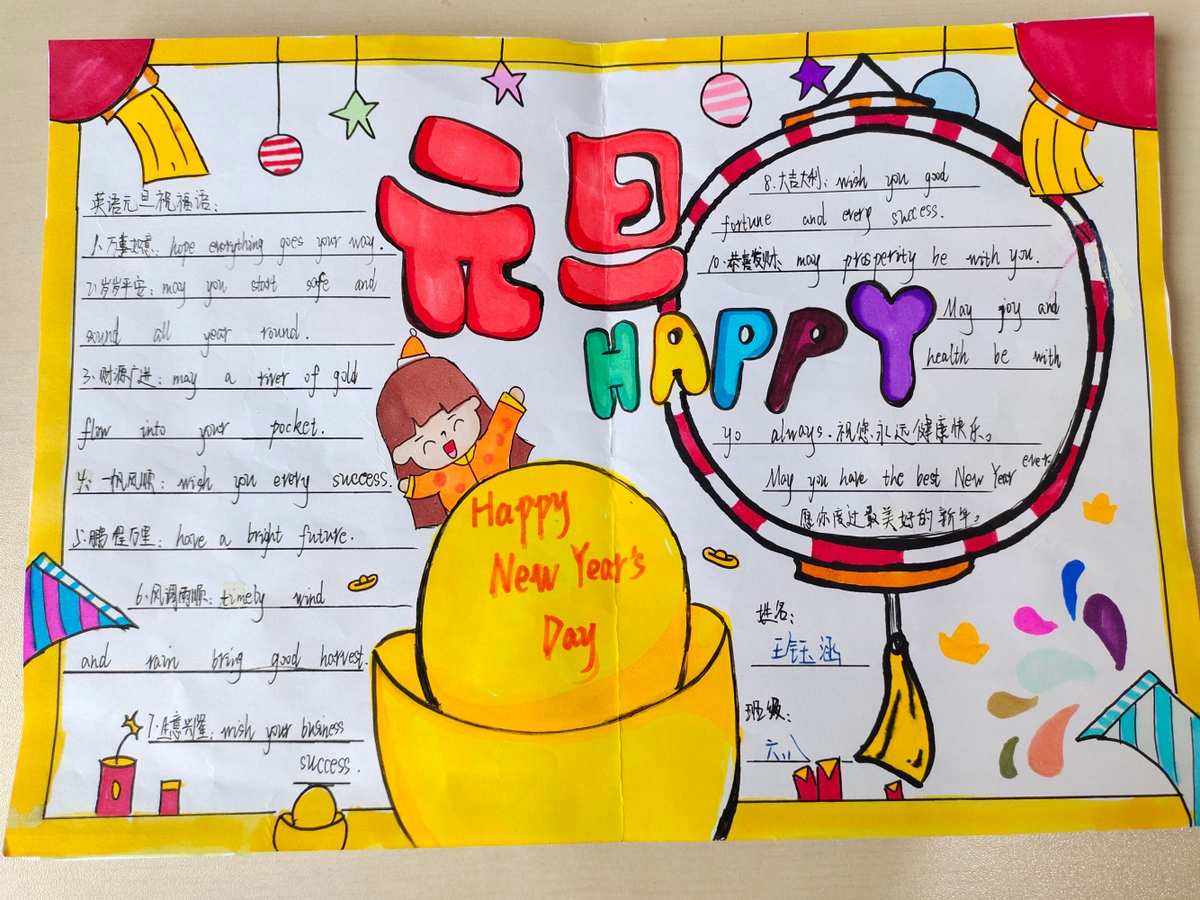 元旦
HAPPY
英语元旦祝福语：
1、万事如意：hope everything goes your way.
2、岁岁平安：may you start safe and
sound all year round.
3、财源广进：may a river of gold
flow into your pocket.
一帆风顺：wish you every success.
5、鹏程万里：have a bright future.
6、风调雨顺：timely wind
and rain bring good harvest.
7、生意兴隆：wish your business
success.
Happy
New Year's
Day
8、大吉大利：wish you good
fortune and every success.
10、恭喜发财：may prosperity be with you.
May joy and
health be with
yo always. 祝您永远健康快乐。
May you have the best New Year ever.
愿你度过最美好的新年。
姓名：
王钰涵
班级：
六八